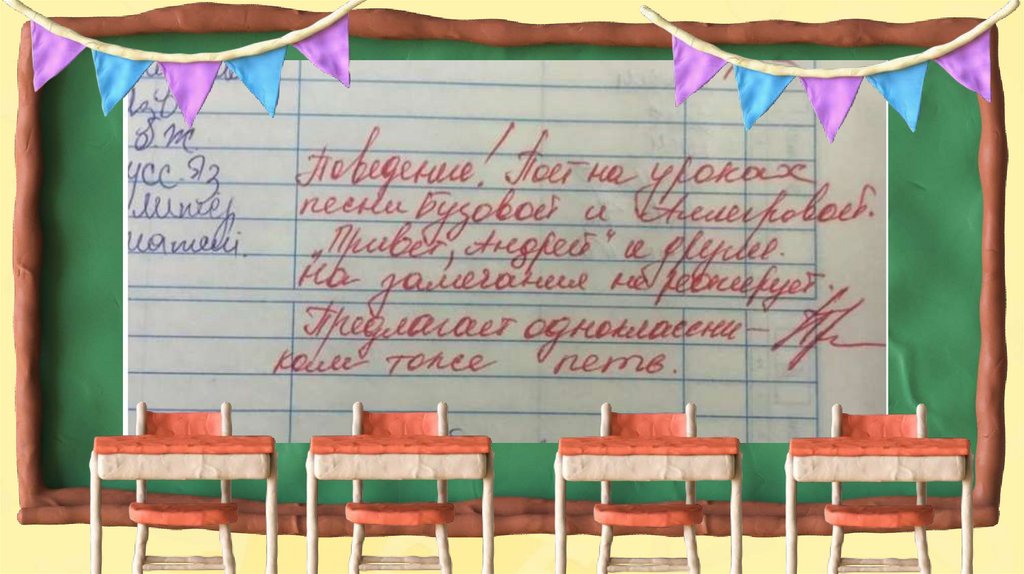 б.ж.
усс. яз
литер
матем.
Поведение! Поёт на уроках
песни Бузовой и Аллегровой.
„Привет, Андрей" и другие.
На замечания не реагирует.
Предлагает одноклассни-
кам тоже петь.